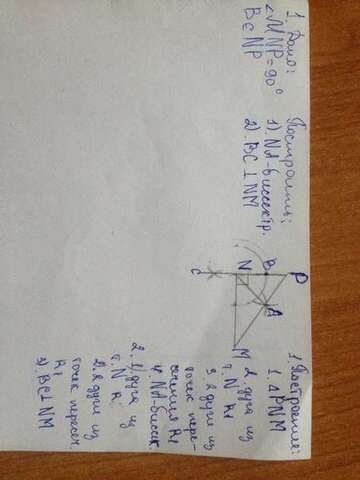 1. Дано:
∠MNP=90°
B∈NP
Построить:
1) NA-биссектр.
2) BC⊥NM
P
B
N
A
C
M
1. Построение:
1. △PNM
2. дуга из
т. N R1
3. 2 дуги из
точек пере-
сечения R1
4. NA-биссек.
2. 1) дуга из
т. N R
2) 2 дуги из
точек пересеч.
R1
3) BC⊥NM